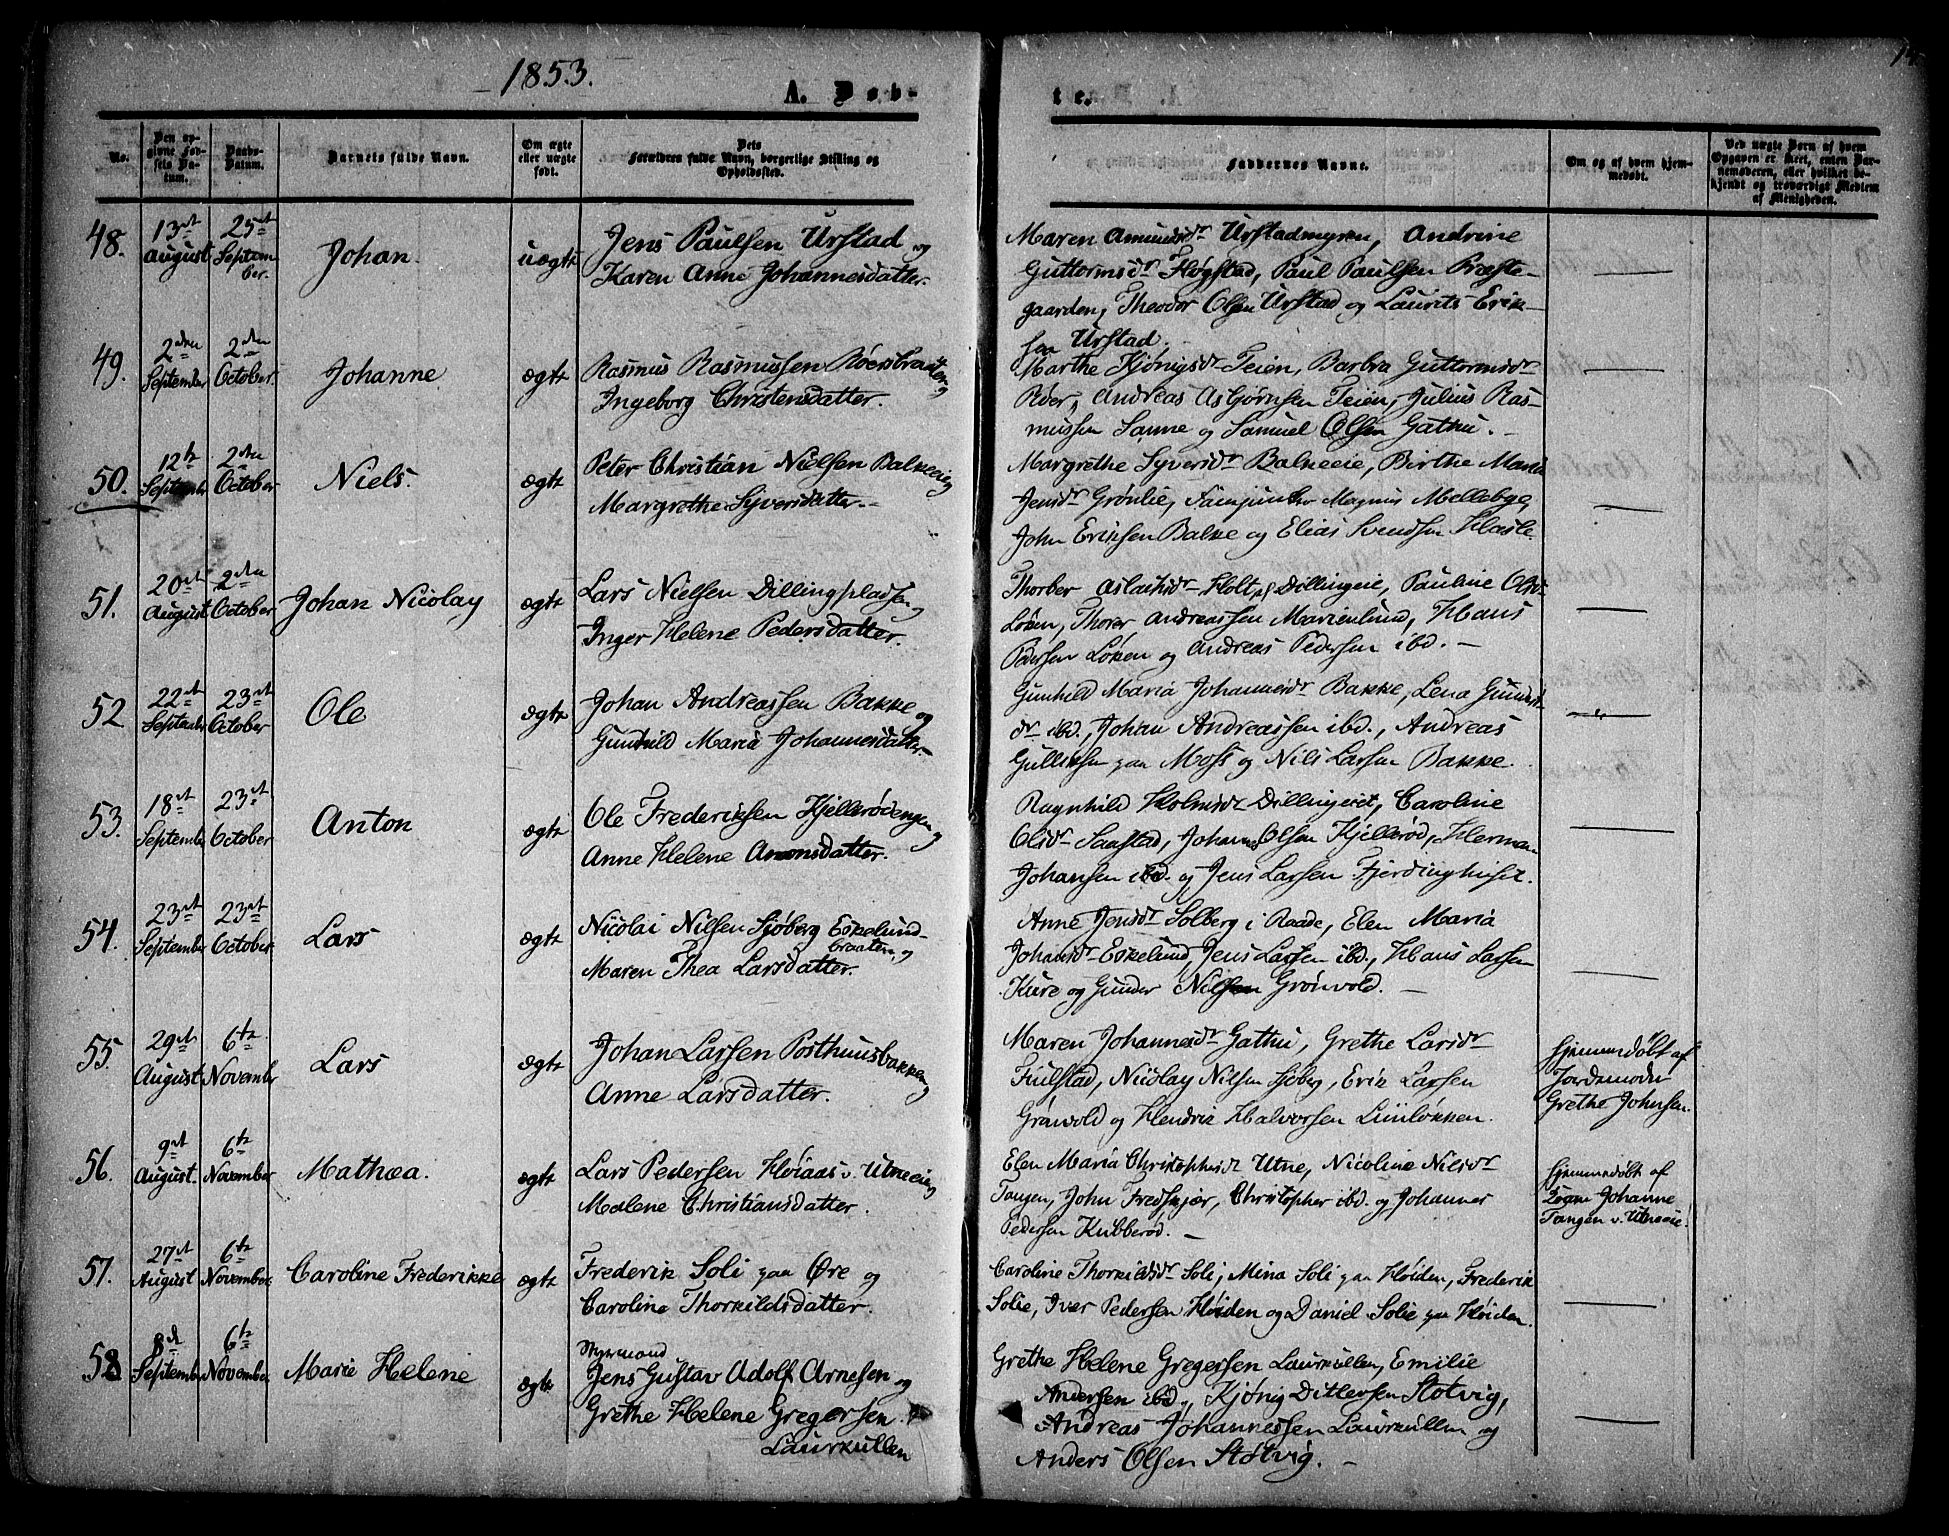 1853.
A. Døb-
te.
No.
Den op-
givne Fød-
sels Da-
tum.
Daabs-
Datum.
Barnets fulde Navn.
Om ægte
eller uægte
født.
Dets
Forældres fulde Navn, borgerlige Stilling og
Opholdssted.
Faddernes Navne.
Om og af hvem hjem-
medøbt.
Ved uægte Børn af hvem
Opgaven er skeet, enten Bar-
nemoderen, eller hvilket be-
kjendt og troværdigt Medlem
af Menigheden.
48.
13de August
25de Septem-
ber.
Johan.
uægte
Jens Paulsen Urstad og
Karen Anne Johannesdatter.
Maren Amundsdr Urstadmyren, Andrine
Guttormsdr Fløgstad, Paul Paulsen Præste-
gaarden, Theodor Olsen Urstad og Laurits Erik-
sen Urstad.
49.
2den September
2den October
Johanne
ægte
Rasmus Rasmussen Röersbraaten og
Ingeborg Christensdatter.
Marthe Kjönigsdr Teien, Barbra Guttormsdr
Röer, Andreas Asbjörnsen Teien, Julius Ras-
mussen Sanne og Samuel Olsen Gathu.
50.
12te September
2den October
Niels.
ægte
Peter Christian Nielsen Balkeeie og
Margrethe Syversdatter.
Margrethe Syversdr Balkeeie, Birthe Maria
Jensdr Grönlie, Magnus Mellebye,
John Eriksen Balke og Elias Svendsen Hasle.
51.
20de August
2den October
Johan Nicolay
ægte
Lars Nielsen Dillingpladsen og
Inger Helene Pedersdatter.
Thorber Aslaksdr Holt pl Dillingeie, Pauline Olsdr
Löken, Thorer Andreassen Marienlund, Hans
Pedersen Löken og Andreas Pedersen ibd.
52
22de September
23de October
Ole
ægte
Johan Andreassen Bakke og
Gunhild Maria Johannesdatter
Gunhild Maria Johannesdr Bakke, Lena Gunders
dr ibd., Johan Andreassen ibd., Andreas
Gulliksen paa Moss og Nils Larsen Bakke.
53.
18de September
23de October
Anton
ægte
Ole Frederiksen Kjellerödengen og
Anne Helene Amonsdatter.
Ragnhild Holmsdr Dillingeiet, Caroline
Olsdr Saastad, Johannes Olsen Kjelleröd, Herman
Johansen ibd. og Jens Larsen Fjerdinghuset.
54.
23de September
23de October.
Lars
ægte
Nicolai Nilsen Sjöberg Eskelund-
braaten, og
Maren Thea Larsdatter.
Anne Jensdr Solberg i Raade, Elen Maria
Johansdr Eskelund, Jens Larsen ibd., Hans Larsen
Kure og Gunder Nilsen Grönvold.
55.
29de August
6te November
Lars
ægte
Johan Larsen Posthuusbakken og
Anne Larsdatter.
Maren Johannesdr Gathu, Grethe Larsdr
Fuglstad, Nicolay Nilsen Sjöberg, Erik Larsen
Grönvold og Hendrik Halvorsen Luulökken.
Hjemmedøbt af
Jordemoder
Grethe Johnsen.
56.
9de August.
6te November
Mathæa.
ægte
Lars Pedersen Höiaas v. Utneeie og
Malene Christiansdatter.
Elen Maria Christophersdr Utne, Nicoline Nilsdr
Tangen, John Fredskjær, Christopher ibd. og Johannes
Pedersen Kubberöd.
Hjemmedøbt af
Johanne
Tangen v. Utneeie.
57.
27de August
6te November.
Caroline Frederikke
ægte
Frederik Soli paa Øre og
Caroline Thorkildsdatter.
Caroline Thorkildsdr Soli, Mina Soli paa Höiden, Frederik
Solie, Iver Pedersen Höiden og Daniel Solie paa Höiden.
58
8de September
6te November
Marie Helene
ægte
Styrmand
Jens Gustav Adolf Arnesen og
Grethe Helene Gregersen
Laurkullen
Grethe Helene Gregersen Laurkullen, Emilie
Andersen ibd., Kjönig Ditlefsen Stötvig,
Andreas Johannessen Laurkullen og
Anders Olsen Stötvig.